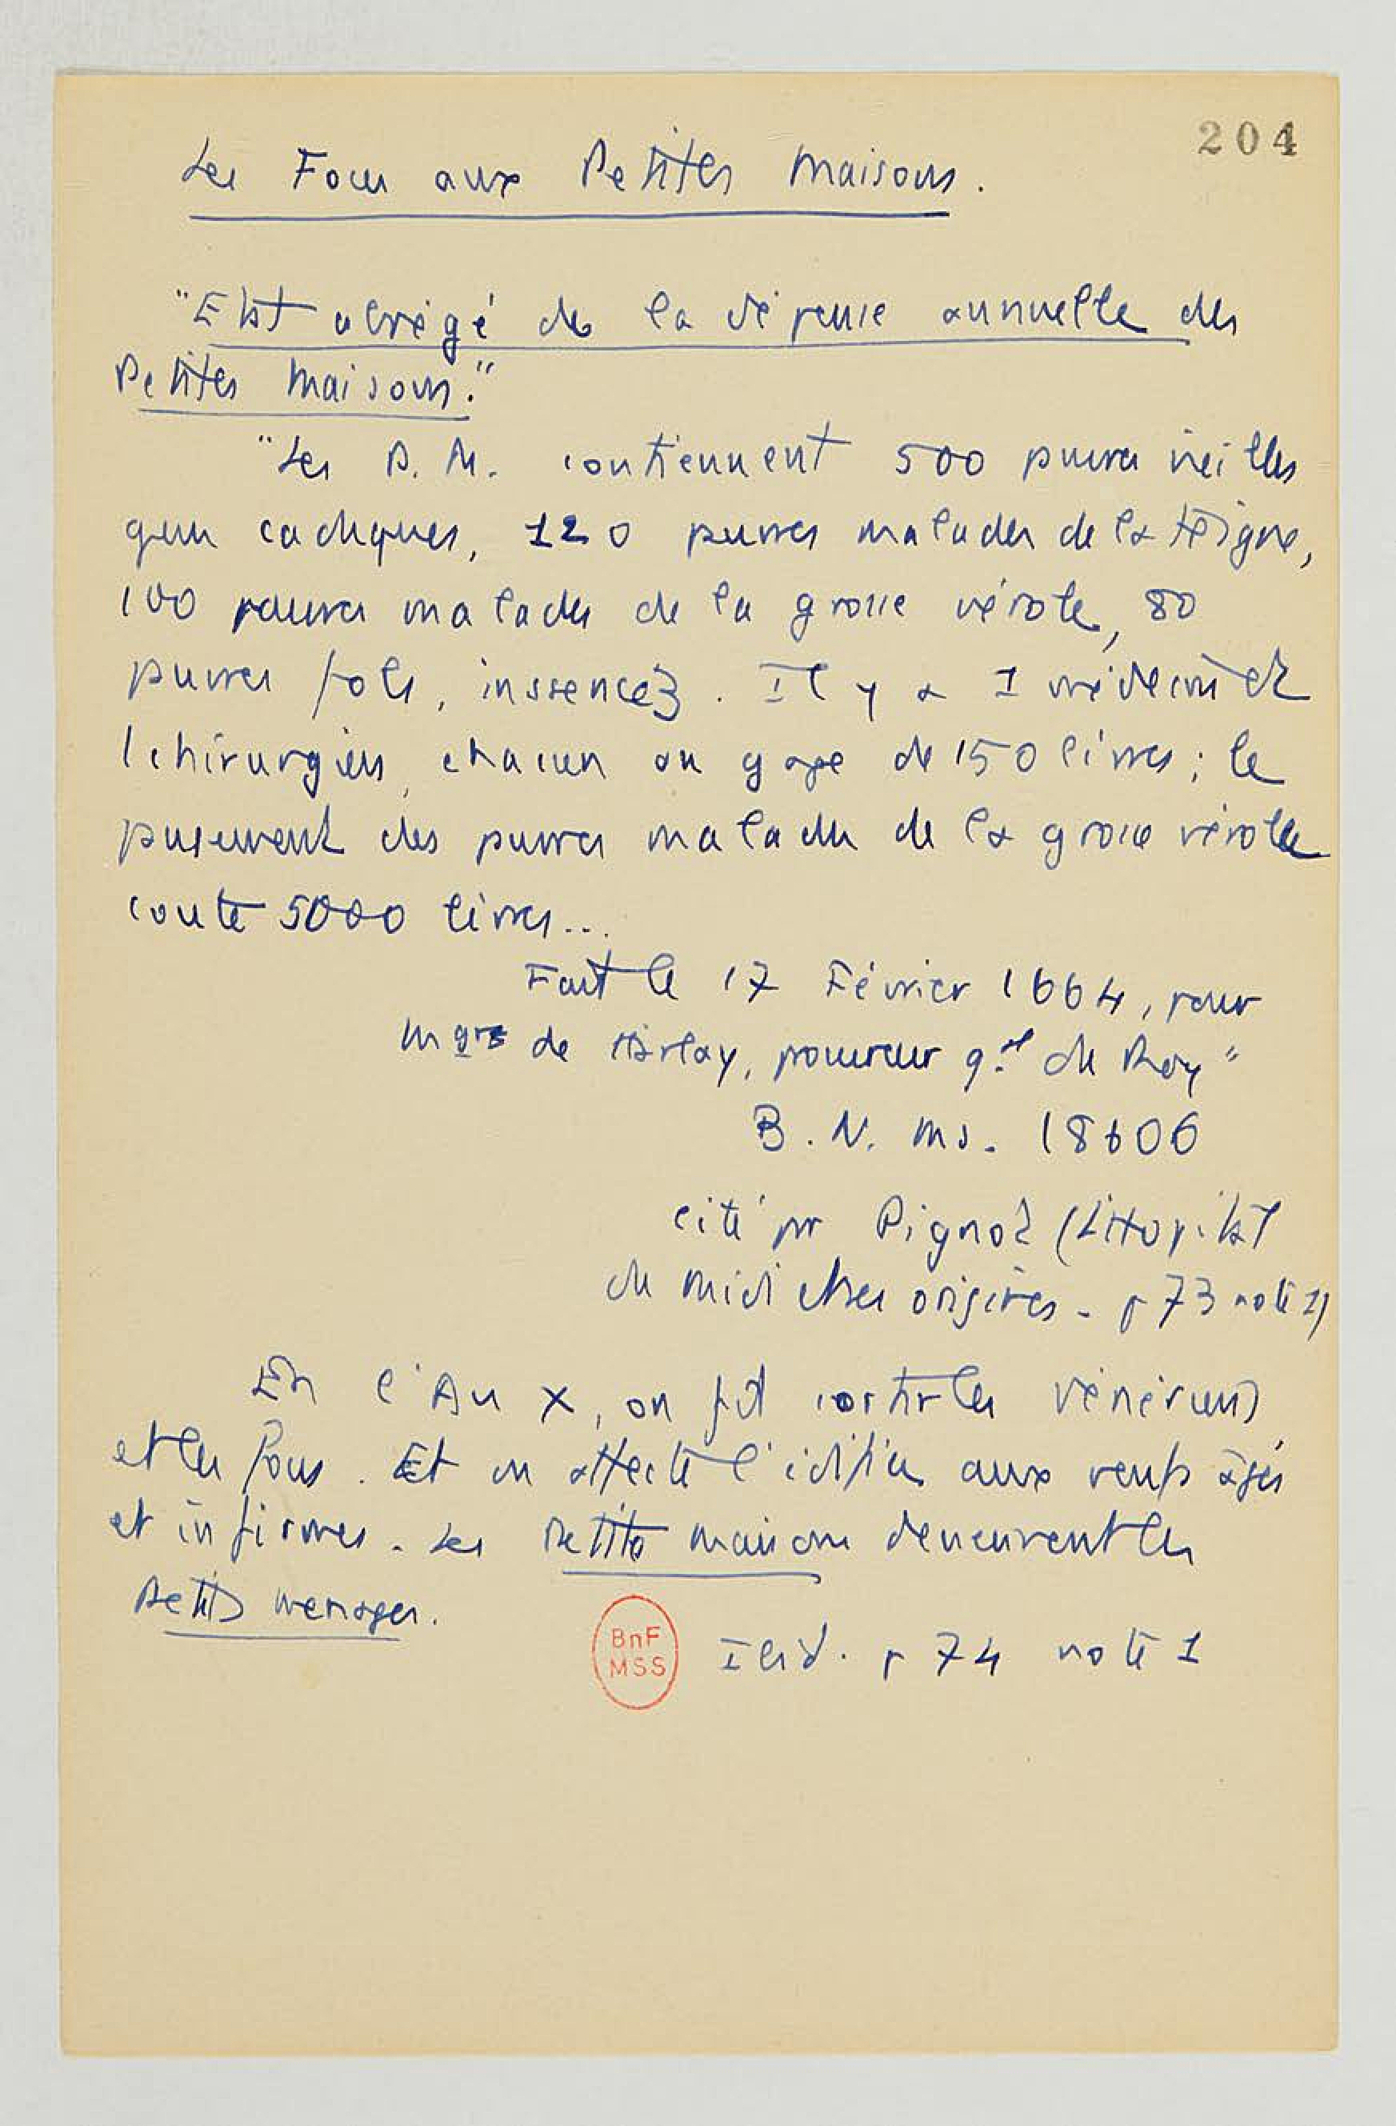 204
Les Fous aux Petites Maisons.
"Etat abrégé de la dépense annuelle des
Petites Maisons."
"Les P. M. contiennent 500 pauvres vieilles
gens caduques, 120 pauvres malades de la teigne,
100 pauvres malades de la grosse vérole, 80
pauvres fols, inssencez. Il y a 1 médecin et
1 chirurgien, chacun au gage de 150 livres ; le
pansement des pauvres malades de la grosse vérolle
coute 5000 livres...
Fait le 17 Février 1664, pour
Mgr de Harlay, procureur gal du Roy"
B. N. ms. 18606
cité par Pignot (L'Hopital
du Midi et ses origines - p 73 note 1)
En l'An X, on fit sortir les vénériens
et les fous. Et on affecte l'édifice aux veufs âgés
et infirmes. Les Petites Maisons deveurent les
Petits Menages.
BnF
MSS
Ibid. p 74 note 1